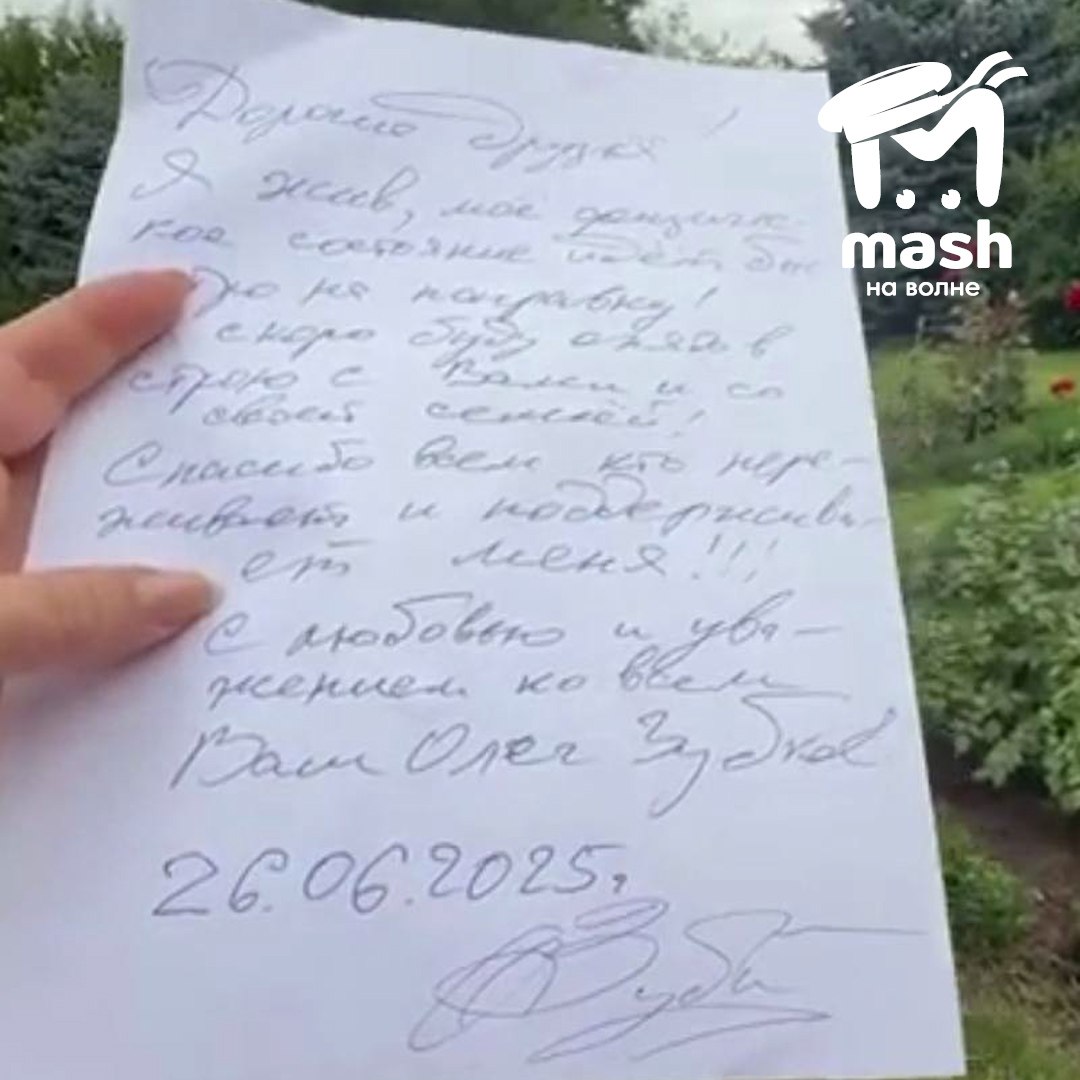 Дорогие друзья!
Я жив, моё физичес-
кое состояние идёт быс
тро на поправку!
скоро буду опять в
строю с Вами и со
своей семьёй!
Спасибо всем кто пере-
живает и поддержива-
ет меня!!!
С любовью и ува-
жением ко всем
Ваш Олег Зубков
26.06.2025г.
mash
на волне